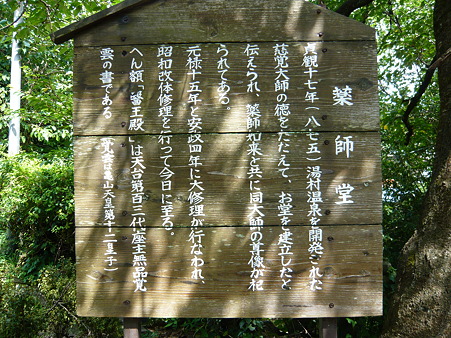 薬師堂
貞観十七年(八七五)湯村温泉を開発された
慈覚大師の徳をたたえて、お堂を建立したと
伝えられ、薬師如来と共に同大師の尊像が祀
られてゐる。
元禄十五年と安政四年に大修理が行なわれ、
昭和改体修理を行って今日に至る。
へん額「醫王殿」は天台第百二代座主無品覚
雲の書である